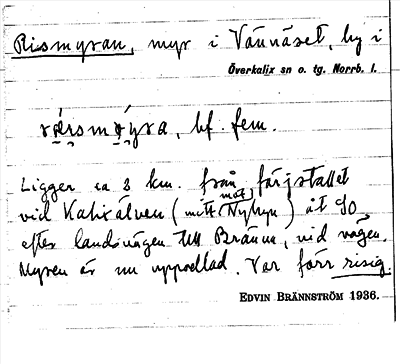 Rismyran, myr i Vännäset, by i
Överkalix sn o. tg. Norrb. l.
bf. fem.
Ligger ca 3 km. från färjstället
vid Kalixälven (mitt mot Nybyn) åt SO
efter landsvägen till Bränna, vid vägen.
Myren är nu uppodlad. Var förr risig.
EDVIN BRÄNNSTRÖM 1936.